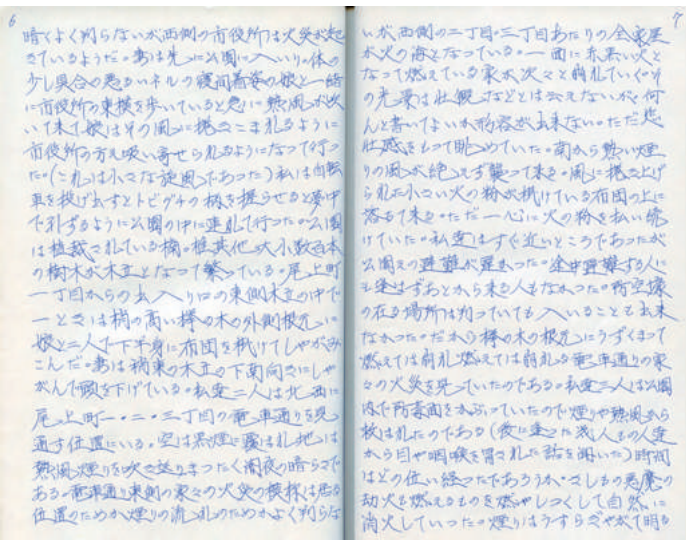 6
暗くよく判らないが西側の市役所は火災が起
きているようだ。妻は先に公園に入り、体の
少し具合の悪るいネルの寝間着姿の娘と一緒
に市役所の東横を歩いていると急に熱風が吹
いて来て娘はその風に捲きこまれるように
市役所の方え吸い寄せられるようになって行っ
た。(これは小さな旋風であった)私は自転
車を投げ出すとトビグチの柄を握らせると夢中
で引ずるように公園の中に連れて行った。公園
は植裁されている楠の 其他 大小数百本
の樹木が木立となって繁っている。尾上町
一丁目からの出入り口の東側木立の中で
一ときは梢の高い欅の木の外側根元に
娘と二人で下半身に布団を掛けてしゃがみ
こんだ。妻は稍東の木立の下南向きにしゃ
がんで頭を下げている。私達二人は北西に
尾上町一・二・三丁目の電車通りを見
通す位置にいる。空は黒煙に覆はれ地は
熱風煙りを吹き送りまったく闇夜の暗らさで
ある。電車通り東側の家々の火災の模様は居る
位置のためか煙りの流れのためかよく判らな
7
いが西側の二丁目・三丁目あたりの全家屋
が火の海となっている。一面に赤黒い火と
なって燃えている家が次々と崩れていく。そ
の光景は壮観などとは云えないが、何
んと書いてよいか形容が出来ない。ただ悲
壮感をもって眺めていた。南から熱い煙
りの風が絶えず襲って来る。風に捲き上げ
られた小さい火の粉が掛けている布団の上に
落ちて来る。ただ一心に火の粉を払い続
けていた。私達はすぐ近いところであったが
公園えの避難が遅かった。途中避難する人に
も逢はずあとから来る人もなかった。防空壕
の在る場所は判っていても入いることも出来
なかった。だから欅の木の根元にうずくまって
燃えては崩れ燃えては崩れる電車通りの家
々の火災を見ていたのである。私達二人は公園
内で防毒面をかぶっていたので煙りや熱風から
救はれたのである(後に逢った幾人もの人達
から目や咽喉を冒された話を聞いた)時間
はどの位い経ったであろうか。さしもの悪魔の
劫火も燃えるものを燃やしつくして自然に
消火していった。煙りはうすらぎやがて明る